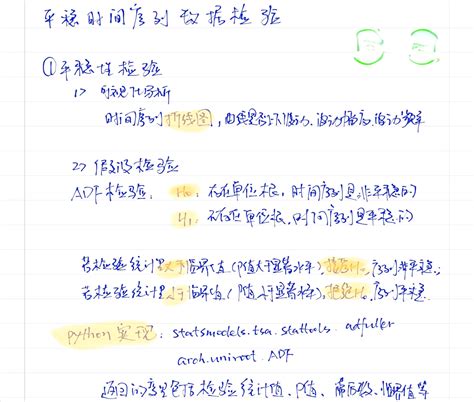 平稳时间序列数据检验
①平稳性检验
1> 可视化分析
时间序列折线图，曲线是否上下波动、波动幅度、波动频率
2> 假设检验
ADF检验： H₀：存在单位根，时间序列是非平稳的
H₁：不存在单位根，时间序列是平稳的
若检验统计量大于临界值（P值大于显著水平）接受H₀，序列非平稳；
若检验统计量小于临界值（P值小于显著水平），拒绝H₀，序列平稳
python实现：statsmodels.tsa.stattools. adfuller
arch.unitroot.ADF
返回的序包括检验统计值、P值、滞后数、临界值等